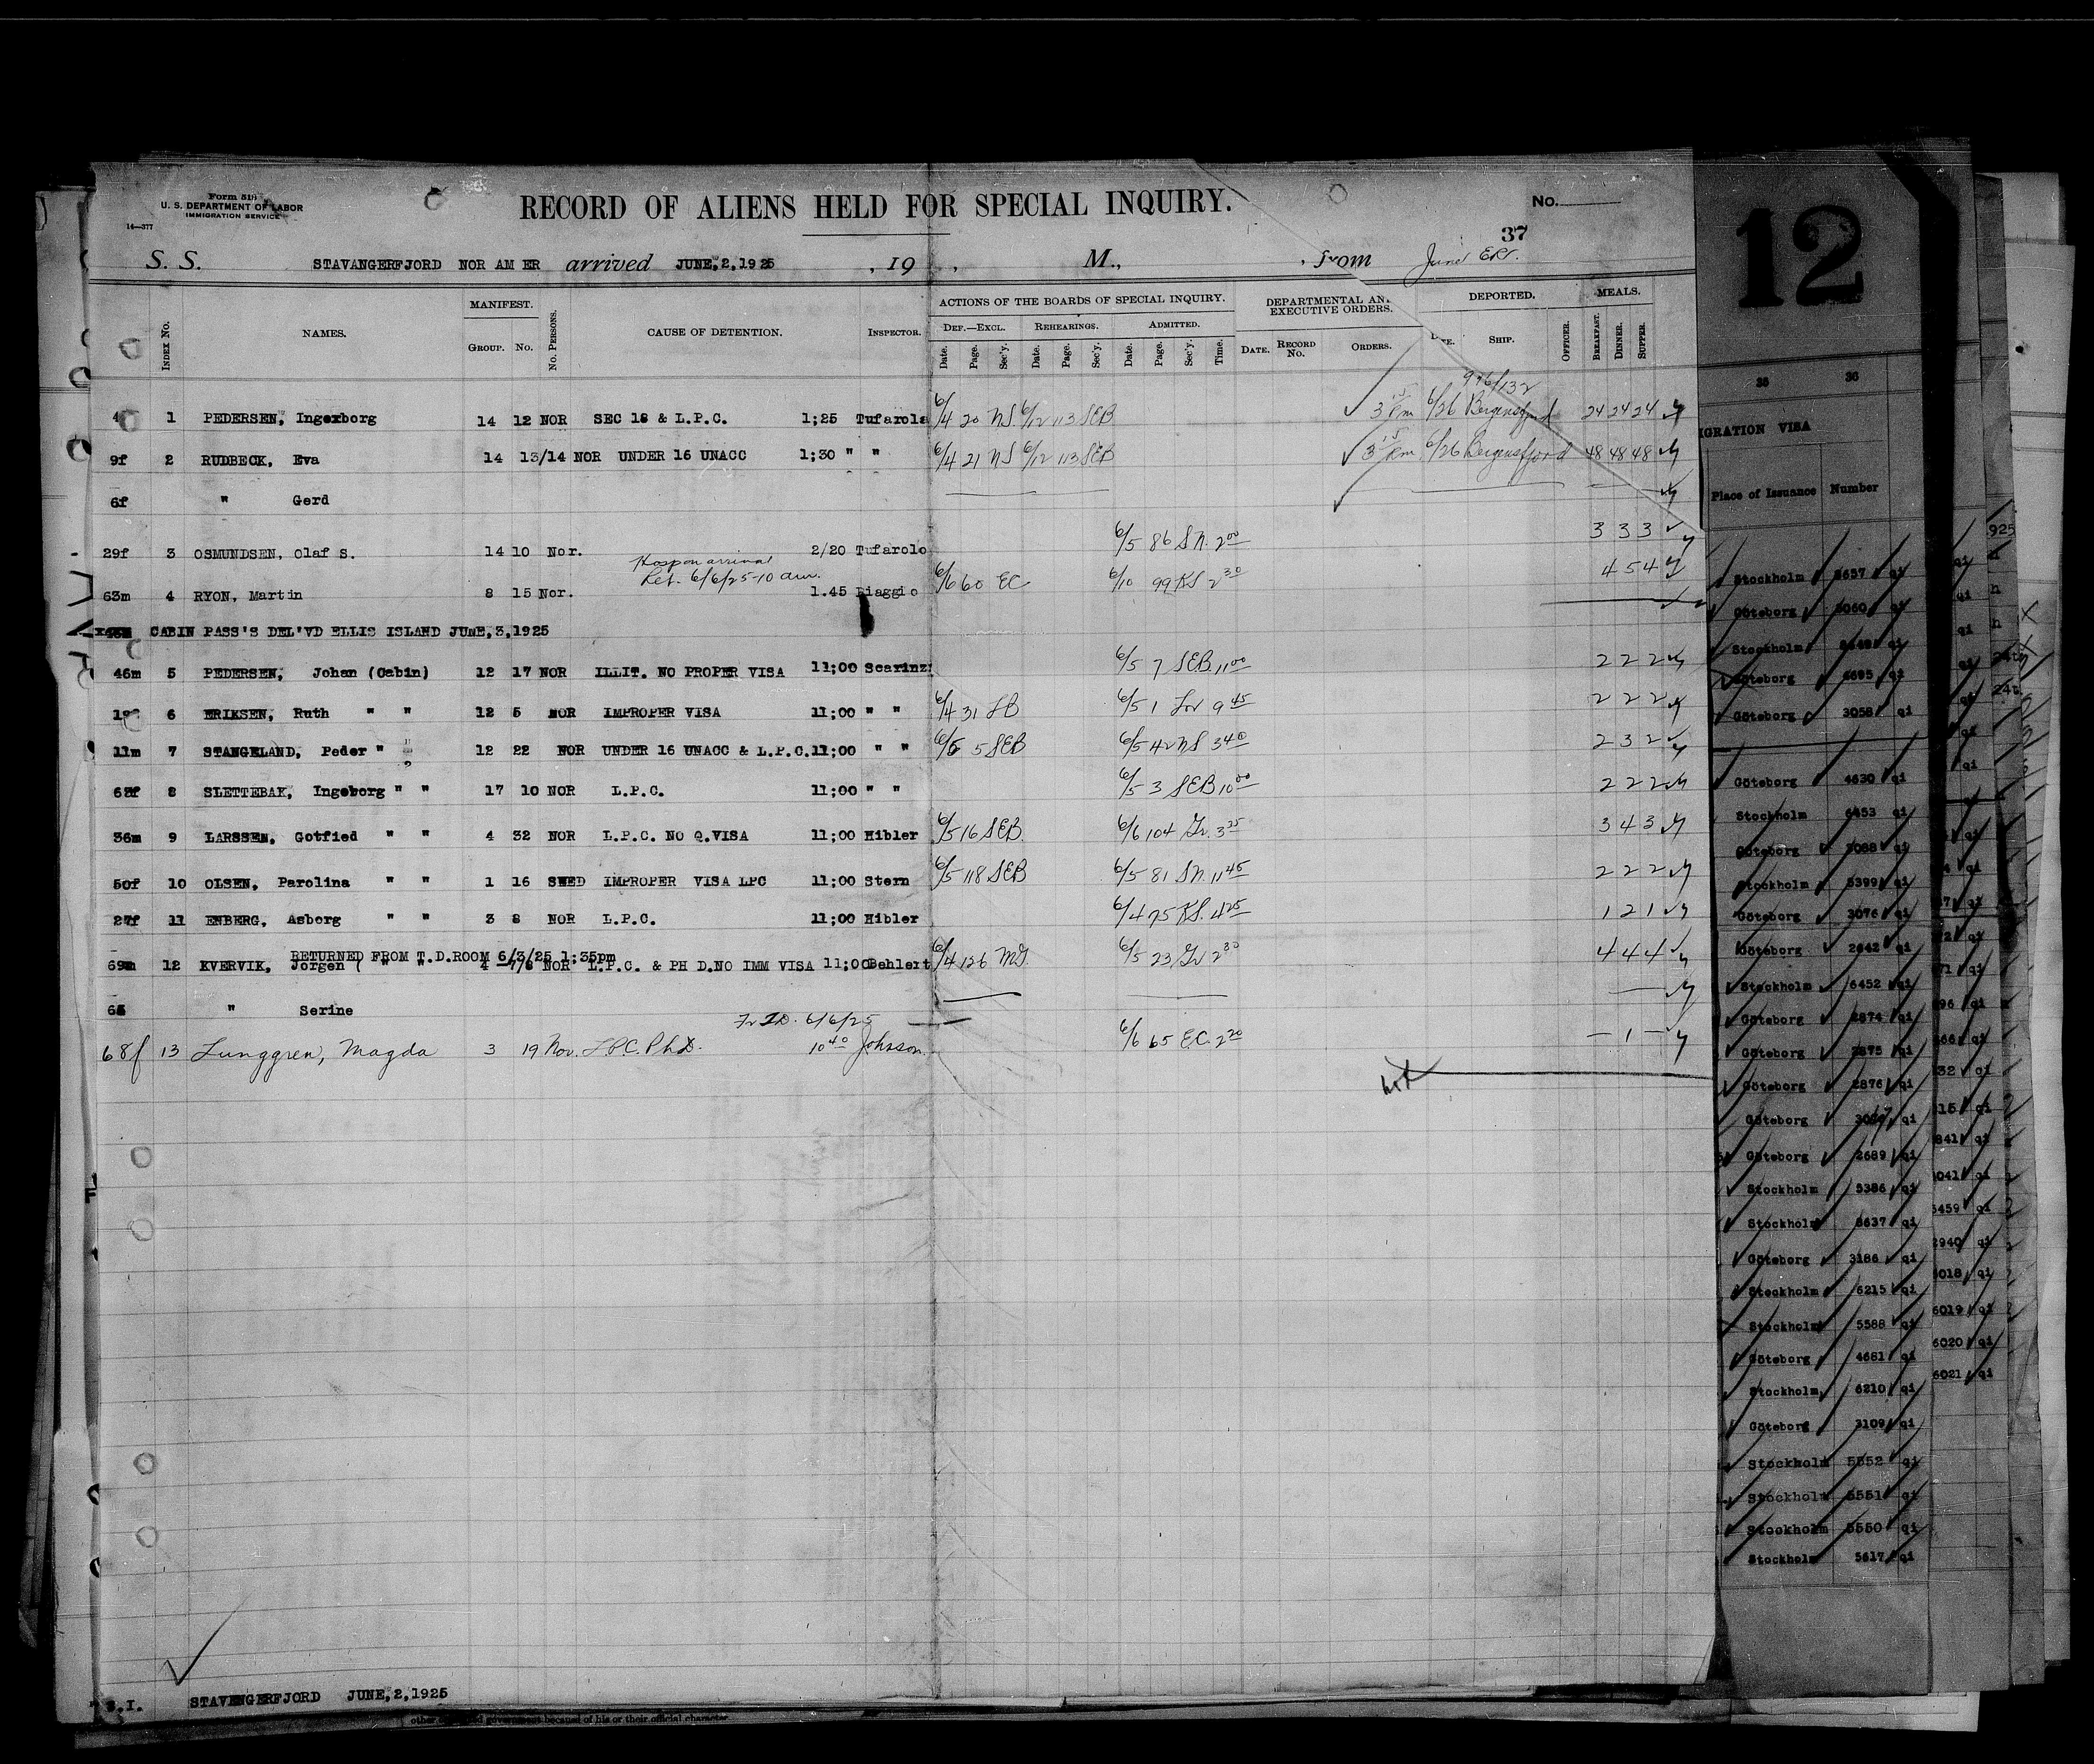 Form 519
U. S. DEPARTMENT OF LABOR
IMMIGRATION SERVICE
14—377
RECORD OF ALIENS HELD FOR SPECIAL INQUIRY.
No.
37
S. S. STAVANGERFJORD NOR AM ER arrived JUNE,2,1925 , 19 , M., , from
MANIFEST. ACTIONS OF THE BOARDS OF SPECIAL INQUIRY. DEPARTMENTAL AN. EXECUTIVE ORDERS. DEPORTED. MEALS.
INDEX No. NAMES. GROUP. No. No. PERSONS. CAUSE OF DETENTION. INSPECTOR. DEF.—EXCL. REHEARINGS. ADMITTED.
Date. Page. Sec'y. Date. Page. Sec'y. Date. Page. Sec'y. Time. DATE. RECORD No. ORDERS. SHIP. OFFICER. BREAKFAST. DINNER. SUPPER.
996/132
1 PEDERSEN, Ingerborg 14 12 NOR SEC 18 & L.P.C. 1;25 Tufarola 6/4 20 NS 6/12 113 SEB 3 15 Pm 6/26 Bergensfjord 24 24 24
9f 2 RUDBECK, Eva 14 13/14 NOR UNDER 16 UNACC 1;30 " " 6/4 21 NS 6/12 113 SEB 3 15 Pm 6/26 Bergensfjord 48 48 48
6f " Gerd
29f 3 OSMUNDSEN, Olaf S. 14 10 Nor. 2/20 Tufarolo 6/5 86 SN. 2 00 3 3 3
Hosp on arrival
Ret. 6/6/25-10 am.
63m 4 RYON, Martin 8 15 Nor. 1.45 Biaggio 6/6 60 EC 6/10 99 KS 2 30 4 5 4
CABIN PASS'S DEL'VD ELLIS ISLAND JUNE,3,1925
46m 5 PEDERSEN, Johan (Cabin) 12 17 NOR ILLIT. NO PROPER VISA 11;00 Scarinzi 6/5 7 SEB 11 00 2 2 2
6 ERIKSEN, Ruth " " 12 5 NOR IMPROPER VISA 11;00 " " 6/4 31 6/5 1 9 45 2 2 2
11m 7 STANGELAND, Peder " " 12 22 NOR UNDER 16 UNACC & L.P.C. 11;00 " " 5 SEB 6/5 42 NS 3 40 2 3 2
8 SLETTEBAK, Ingeborg " " 17 10 NOR L.P.C. 11;00 " " 6/5 3 SEB 10 00 2 2 2
36m 9 LARSSEN, Gotfied " " 4 32 NOR L.P.C. NO Q.VISA 11;00 Hibler 6/5 16 SEB. 6/6 104 Gr. 3 25 3 4 3
50f 10 OLSEN, Parolina " " 1 16 SWED IMPROPER VISA LPC 11;00 Stern 6/5 118 SEB 6/5 81 SN. 11 45 2 2 2
27f 11 ENBERG, Asborg " " 3 8 NOR L.P.C. 11;00 Hibler 6/4 75 KS. 4 25 1 2 1
RETURNED FROM T.D.ROOM 6/3/25 1:35pm
69m 12 KVERVIK, Jorgen ( " " 4 7/8 NOR L.P.C. & PH D.NO IMM VISA 11;00 Behlert 6/4 126 MG. 6/5 23 Gr 2 30 4 4 4
" Serine
Fr T.D. 6/6/25
68f 13 Lunggren, Magda 3 19 Nor. LPC. PhD. 10 40 Johnson 6/6 65 EC. 2 20 — 1 —
STAVENGERFJORD JUNE,2,1925
12
35 36
IGRATION VISA
Place of Issuance Number
Stockholm
Göteborg
Stockholm
Göteborg
Göteborg 3058 qi
Göteborg 4630 qi
Stockholm 6453 qi
Göteborg
Stockholm 5399 qi
Göteborg 3076 qi
Göteborg 2642 qi
Stockholm 6452 qi
Göteborg 2874 qi
Göteborg 2875 qi
Göteborg 2876 qi
Göteborg qi
Göteborg 2689 qi
Stockholm 5386 qi
Stockholm qi
Göteborg 3186 qi
Stockholm 6215 qi
Stockholm 5588 qi
Göteborg 4681 qi
Stockholm 6210 qi
Göteborg 3109 qi
Stockholm 5552 qi
Stockholm 5551 qi
Stockholm 5550 qi
Stockholm 5617 qi
6019 qi
6020 qi
6021 qi